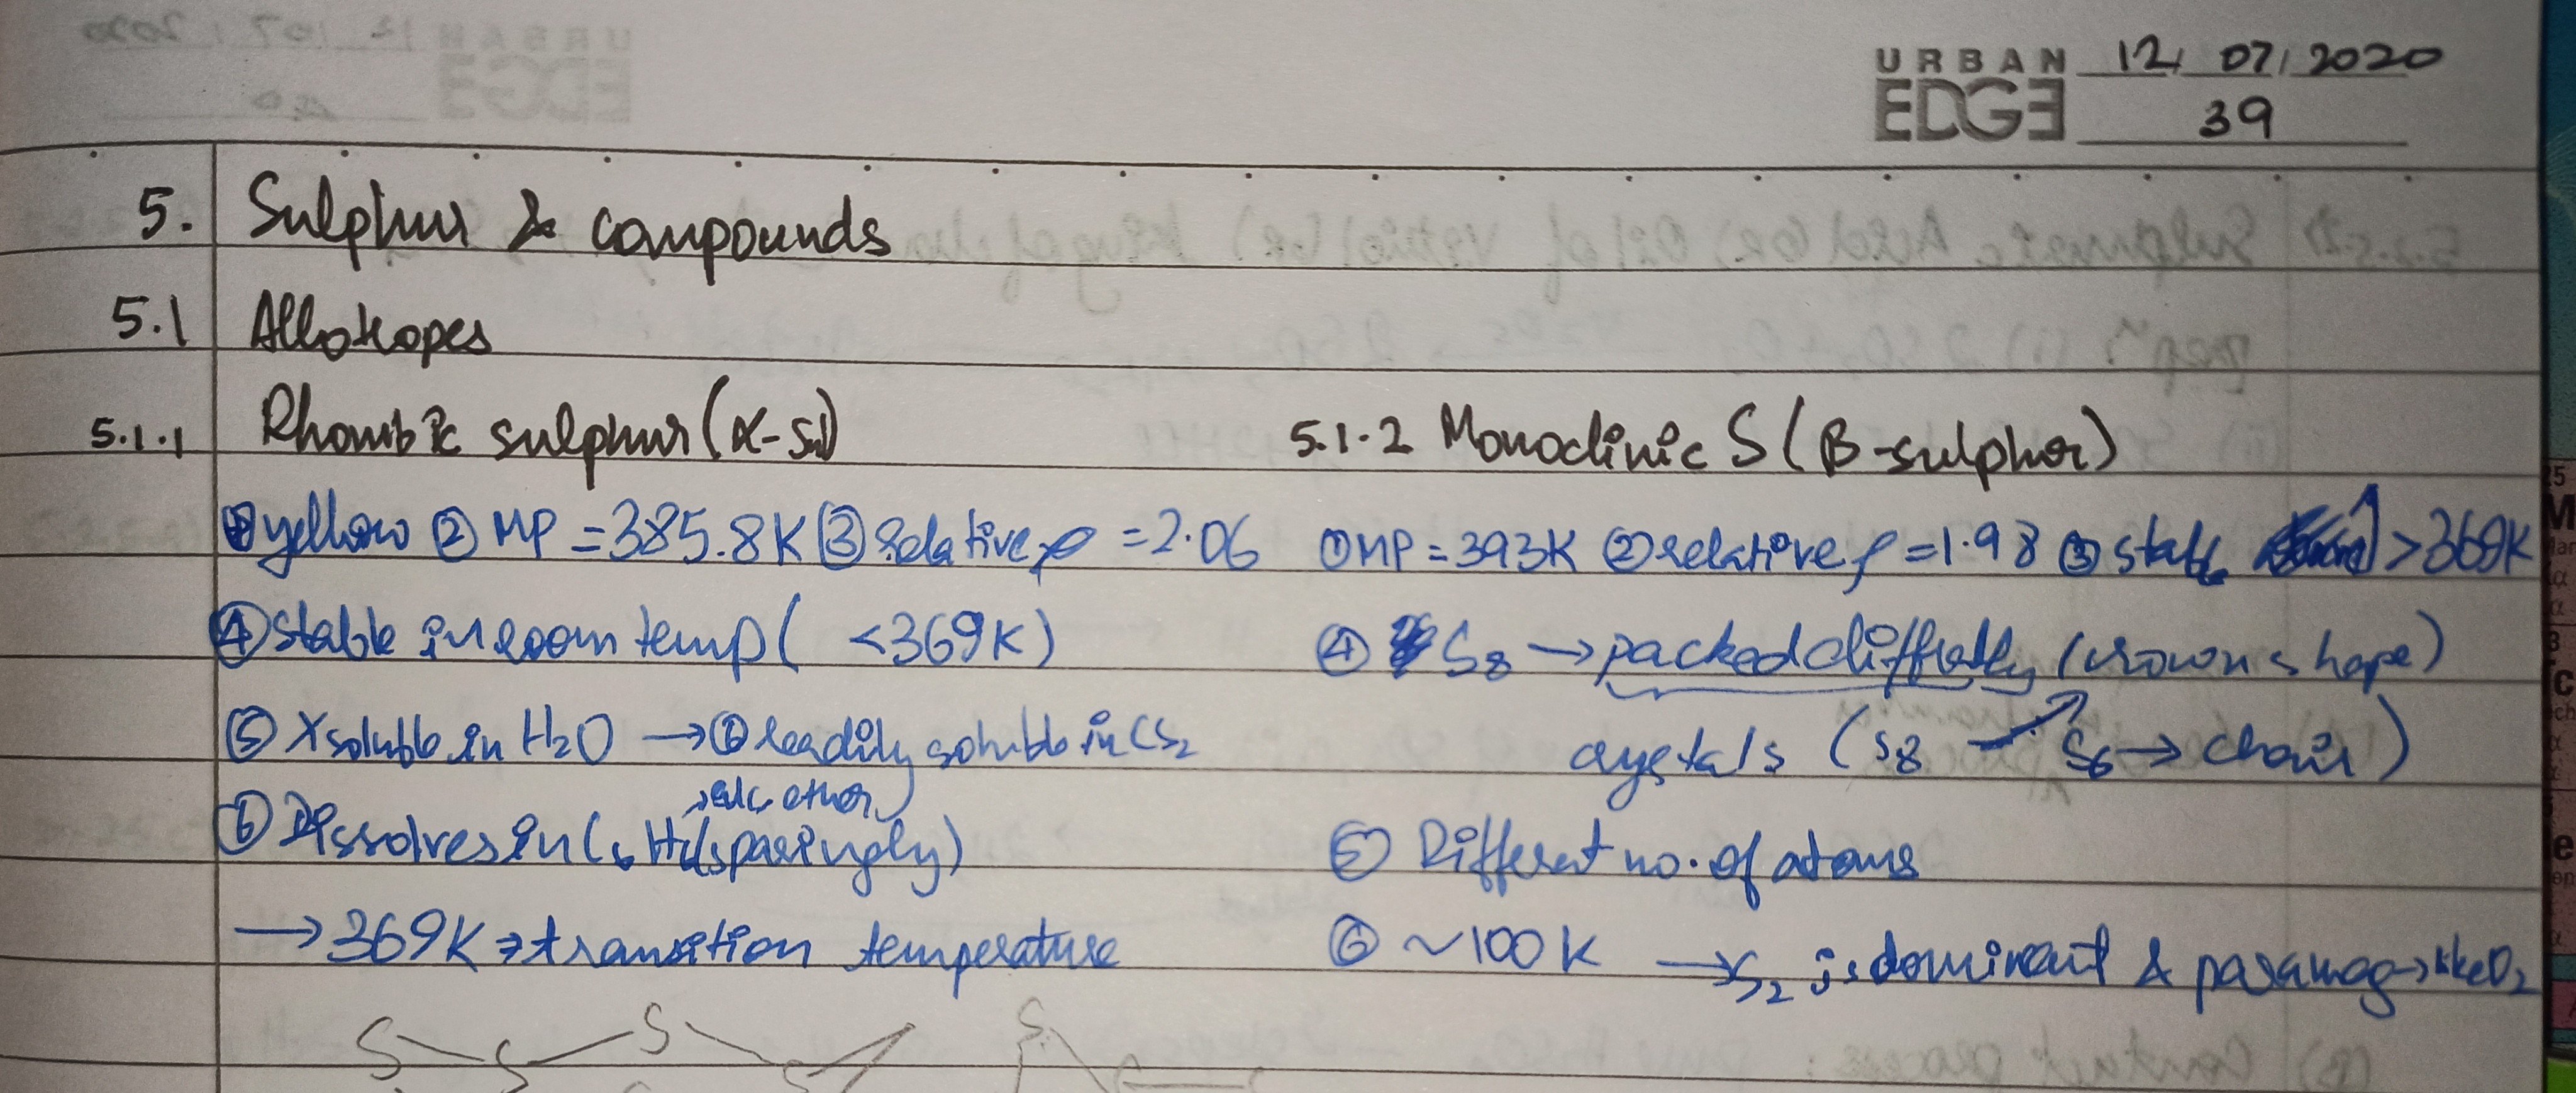 URBAN EDGE 12/07/2020
39
5. Sulphur & compounds
5.1 Allotropes
5.1.1 Rhombic sulphur (α-Su)
① yellow ② MP = 385.8K ③ Relative ρ = 2.06
④ stable in room temp ( <369K)
⑤ X soluble in H2O → ⑥ readily soluble in CS2
→ alc, ether
⑥ Dissolves in C6H6 (sparingly)
→ 369K → transition temperature
5.1.2 Monoclinic S (β-sulphur)
① MP = 393K ② relative ρ = 1.98 ③ stable >369K
④ S8 → packed differently (crown shape)
crystals (S8 S6 → chair)
⑤ Different no. of atoms
⑥ ~100K → S2 is dominant & paramag → like O2
S S S S S